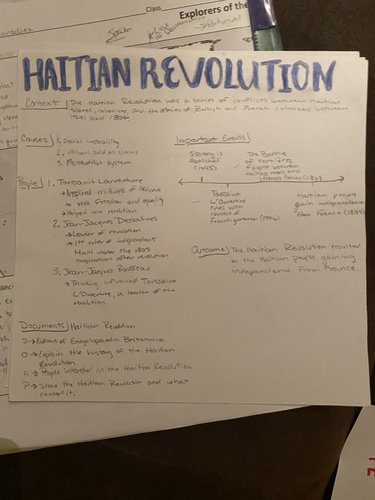 Class
Explorers of the
HAITIAN REVOLUTION
Context The Haitian Revolution was a series of conflicts between Haitian
slaves, colonists, and the armies of British and French colonizers between
1791 and 1804.
Causes
1. Social instability
2. African
slaves
3. Plantation system
Important Events
Slavery is
Abolished
The Battle
of Vertières
fought between
Haitian
and
French
1803
Toussaint
L'Overture
rules with
consent of
French governor
Haitian people
gain independence
from France
People
1. Toussaint Louverture
→ Inspired millions of Africans
to seek freedom and equality
→ Helped win revolution
2. Jean-Jacques Dessalines
→ Leader of revolution
→ 1st ruler of independent
Haiti under the 1805
constitution after revolution
3. Jean-Jacques Rousseau
→ Thinking influenced Toussaint
L'Overture, a leader of the
revolution.
Outcome The Haitian Revolution resulted
in the Haitian people gaining
independence from France.
Documents Haitian Revolution
S → Editors of Encyclopaedia Britannica
O → Explain the history of the Haitian
Revolution
A → People interested in the Haitian Revolution
P → Show the Haitian Revolution and what
caused it.